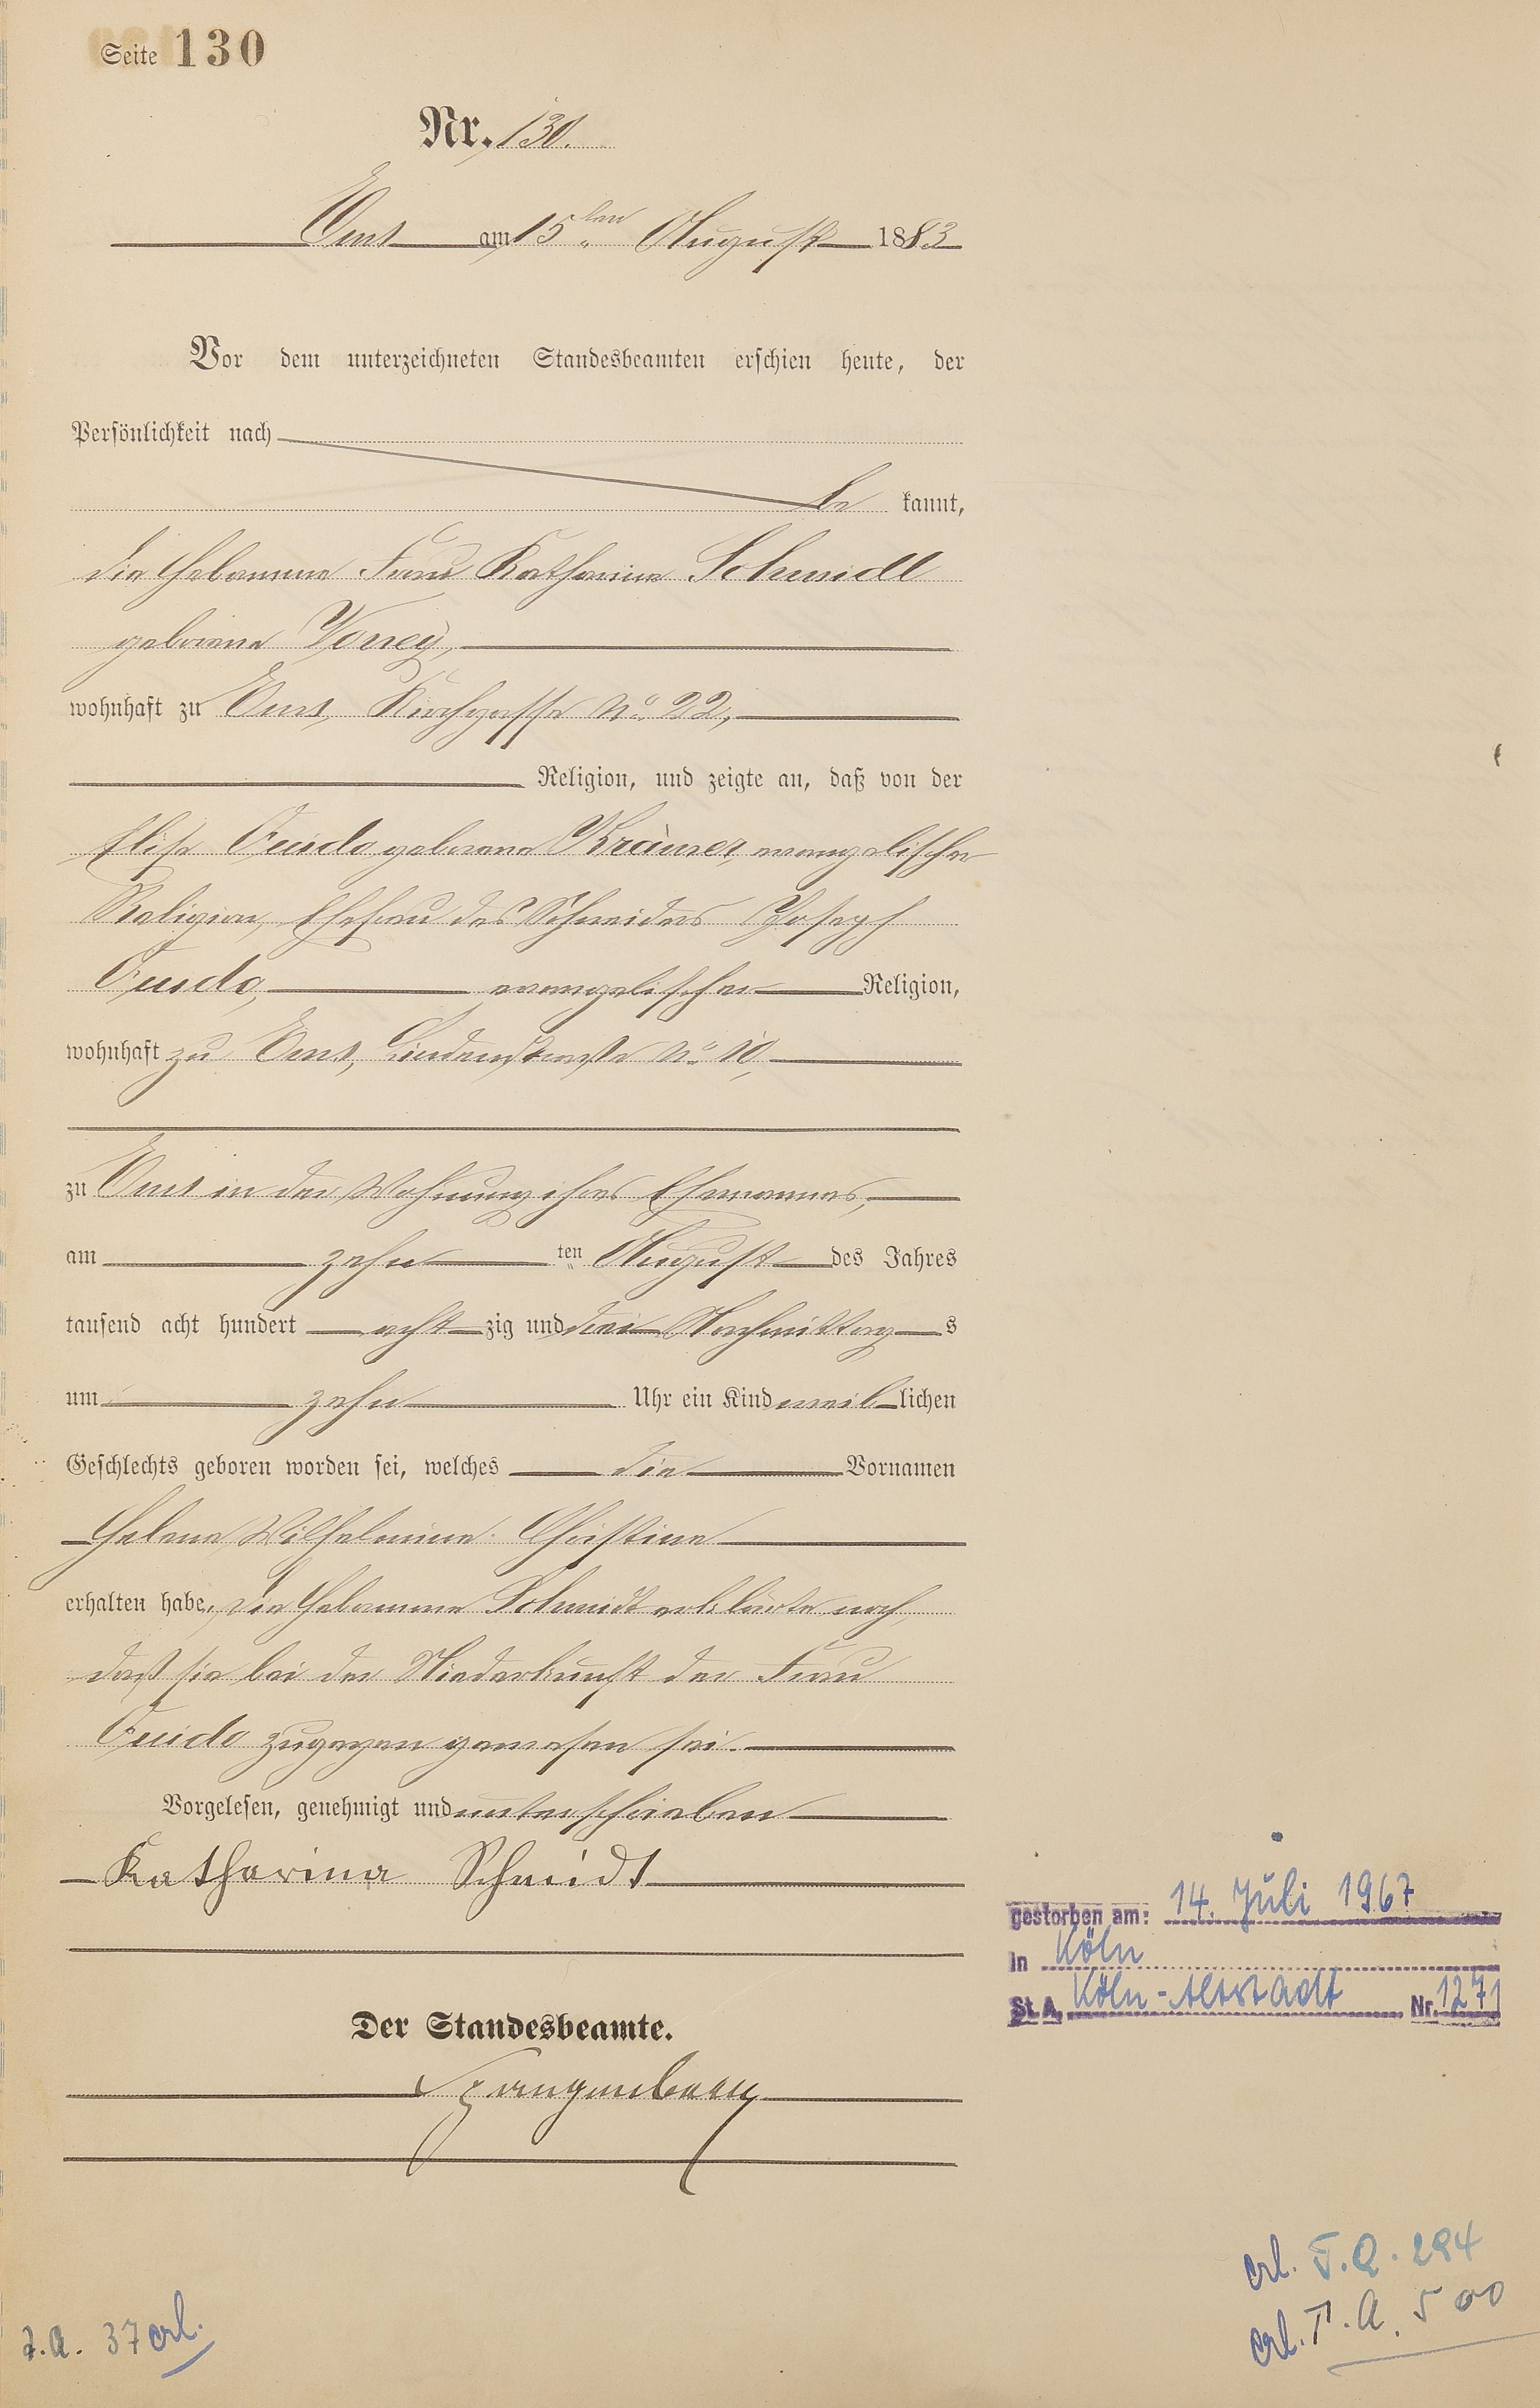 Seite 130
Nr. 130.
Ems am 15ten August 1883
Vor dem unterzeichneten Standesbeamten erschien heute, der
Persönlichkeit nach
be kannt,
die Hebamme Frau Katharina Schmidt
geborene
wohnhaft zu Ems, Kirchgasse No 22,
Religion, und zeigte an, daß von der
Elise geborene Krämer, evangelischer
Religion, Ehefrau des Schneiders Joseph
evangelischer Religion,
wohnhaft zu Ems, Lindenstraße No 10,
zu Ems in der Wohnung ihres Ehemannes,
am zehn ten August des Jahres
tausend acht hundert acht zig und drei Nachmittag s
um zehn Uhr ein Kind weib lichen
Geschlechts geboren worden sei, welches die Vornamen
Helene Wilhelmine Christine
erhalten habe. Die Hebamme Schmidt erklärte noch,
daß sie bei der Niederkunft der Frau
zugegen gewesen sei.
Vorgelesen, genehmigt und unterschrieben
Katharina Schmidt
Der Standesbeamte.
Spangenberg
gestorben am: 14. Juli 1967
in Köln
St. A. Köln-Altstadt Nr. 1271
erl. T.A. 500
37 erl.